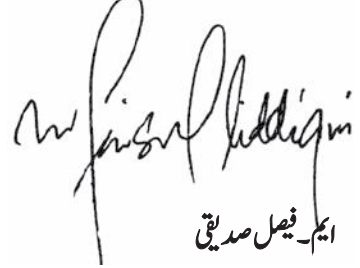 M Faisal Siddiqui
ایم۔ فیصل صدیقی